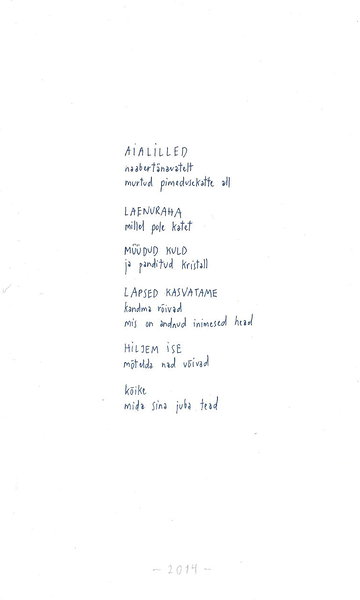 AIALILLED
naabertänavatelt
murtud pimedusekatte all
LAENURAHA
millel pole katet
MÜÜDUD KULD
ja panditud kristall
LAPSED KASVATAME
kandma rõivad
mis on andnud inimesed head
HILJEM ISE
mõtelda nad võivad
kõike
mida sina juba tead
- 2014 -